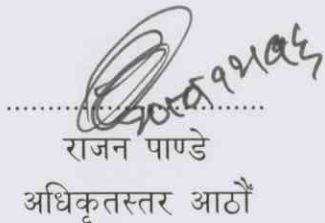 ....................................
राजन पाण्डे
अधिकृतस्तर आठौं